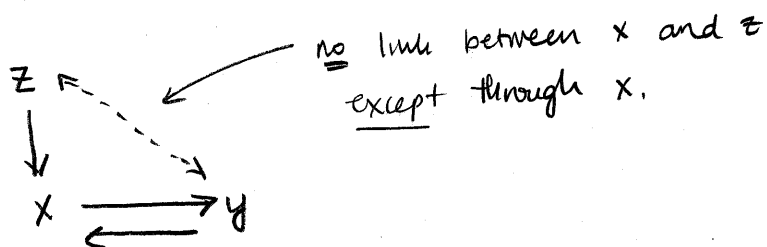 no link between x and z
except through x.
Z
X y